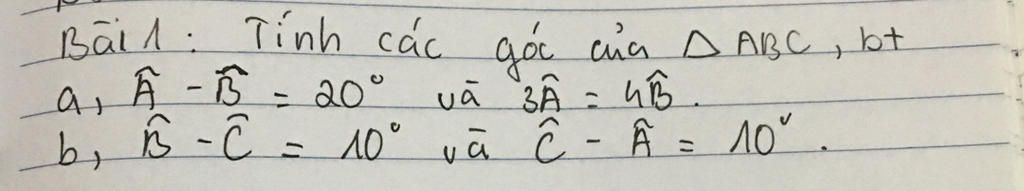 Bài 1: Tính các góc của △ABC, bt
a, Â - B̂ = 20° và 3Â = 4B̂.
b, B̂ - Ĉ = 10° và Ĉ - Â = 10°.